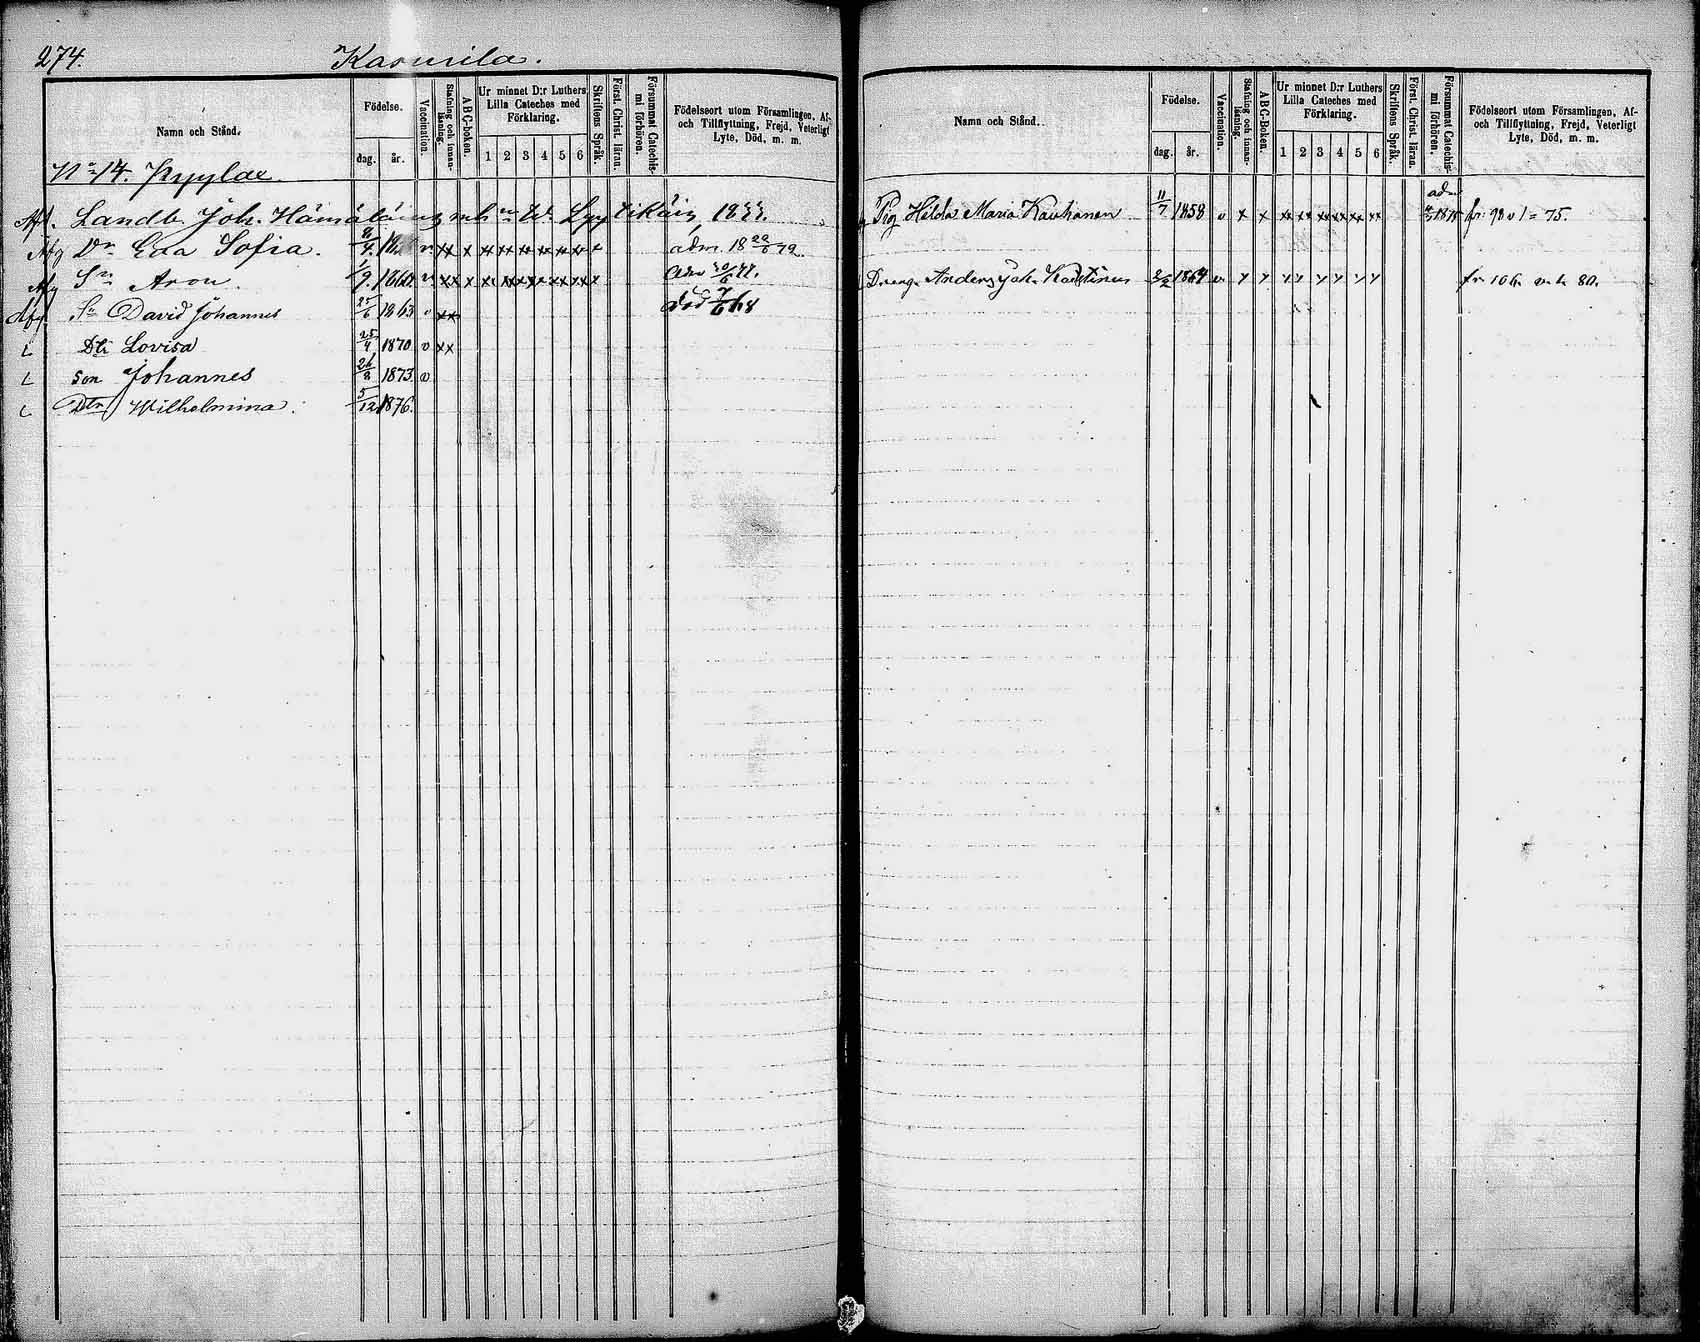 274.
Karmila.
Namn och Stånd.
Födelse.
dag. år.
Vaccination.
Stafning och innan-läsning.
A B C-boken.
Ur minnet D:r Luthers Lilla Cateches med Förklaring.
1 2 3 4 5 6
Skriftens Språk.
Först. Christ. läran.
Försummat Catechismi förhören.
Födelseort utom Församlingen, Af- och Tillflyttning, Frejd, Veterligt Lyte, Död, m. m.
No 14. Pyylae
Afl. Landb. Joh. Hämäläing enh. W. Lyytikäin, 18
Afg Dr Eva Sofia. 8/4. v xx x xx xx xx xx xx xx x adm. 18 79.
Afg Sn Aron. 1/9. 1860 v xx x xx xx xx xx xx x adm 77.
Afg Sn David Johannes 25/6 1863 v xx död 7/6 68
L Dtr Lovisa 25/4 1870 v xx
L Son Johannes 26/8 1873 v
L Dtr Wilhelmina. 5/12 1876.
Namn och Stånd.
Födelse.
dag. år.
Vaccination.
Stafning och innan-läsning.
A B C-boken.
Ur minnet D:r Luthers Lilla Cateches med Förklaring.
1 2 3 4 5 6
Skriftens Språk.
Först. Christ. läran.
Försummat Catechismi förhören.
Födelseort utom Församlingen, Af- och Tillflyttning, Frejd, Veterligt Lyte, Död, m. m.
Pig Hilda Maria Kauhanen 11/7 1858 v x x xx xx xx xx xx xx adm 1875 fr. 98 v l = 75.
Dreng Anders Joh. 2/2 1864 v 80.